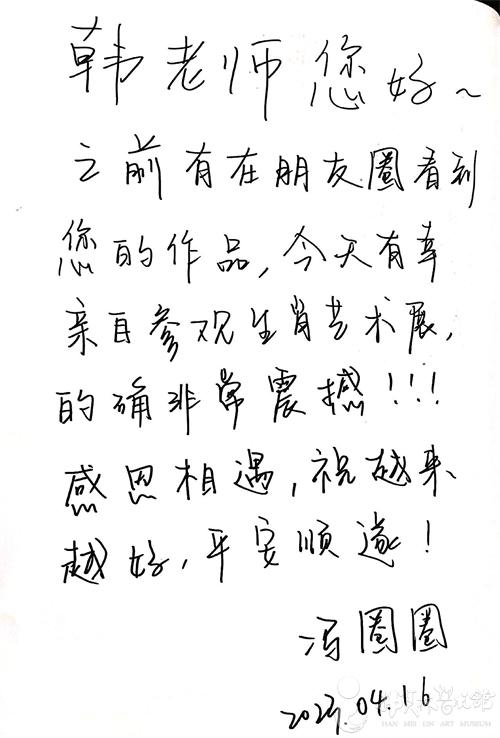 韩老师您好~
之前有在朋友圈看到
您的作品,今天有幸
亲自参观生肖艺术展,
的确非常震撼!!!
感恩相遇,祝越来
越好,平安顺遂!
冯圈圈
2023.04.16
韩美林艺术馆
HAN MEI LIN ART MUSEUM